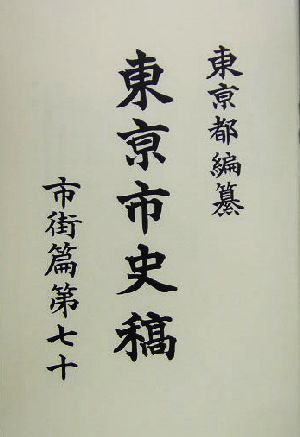 東亰都編纂
東亰市史稿
市街篇第七十